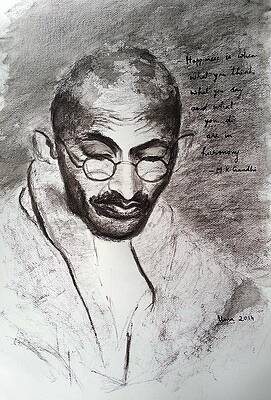 Happiness is when
what you think,
what you say
and what
you do
are in
harmony
- M.K Gandhi
2014